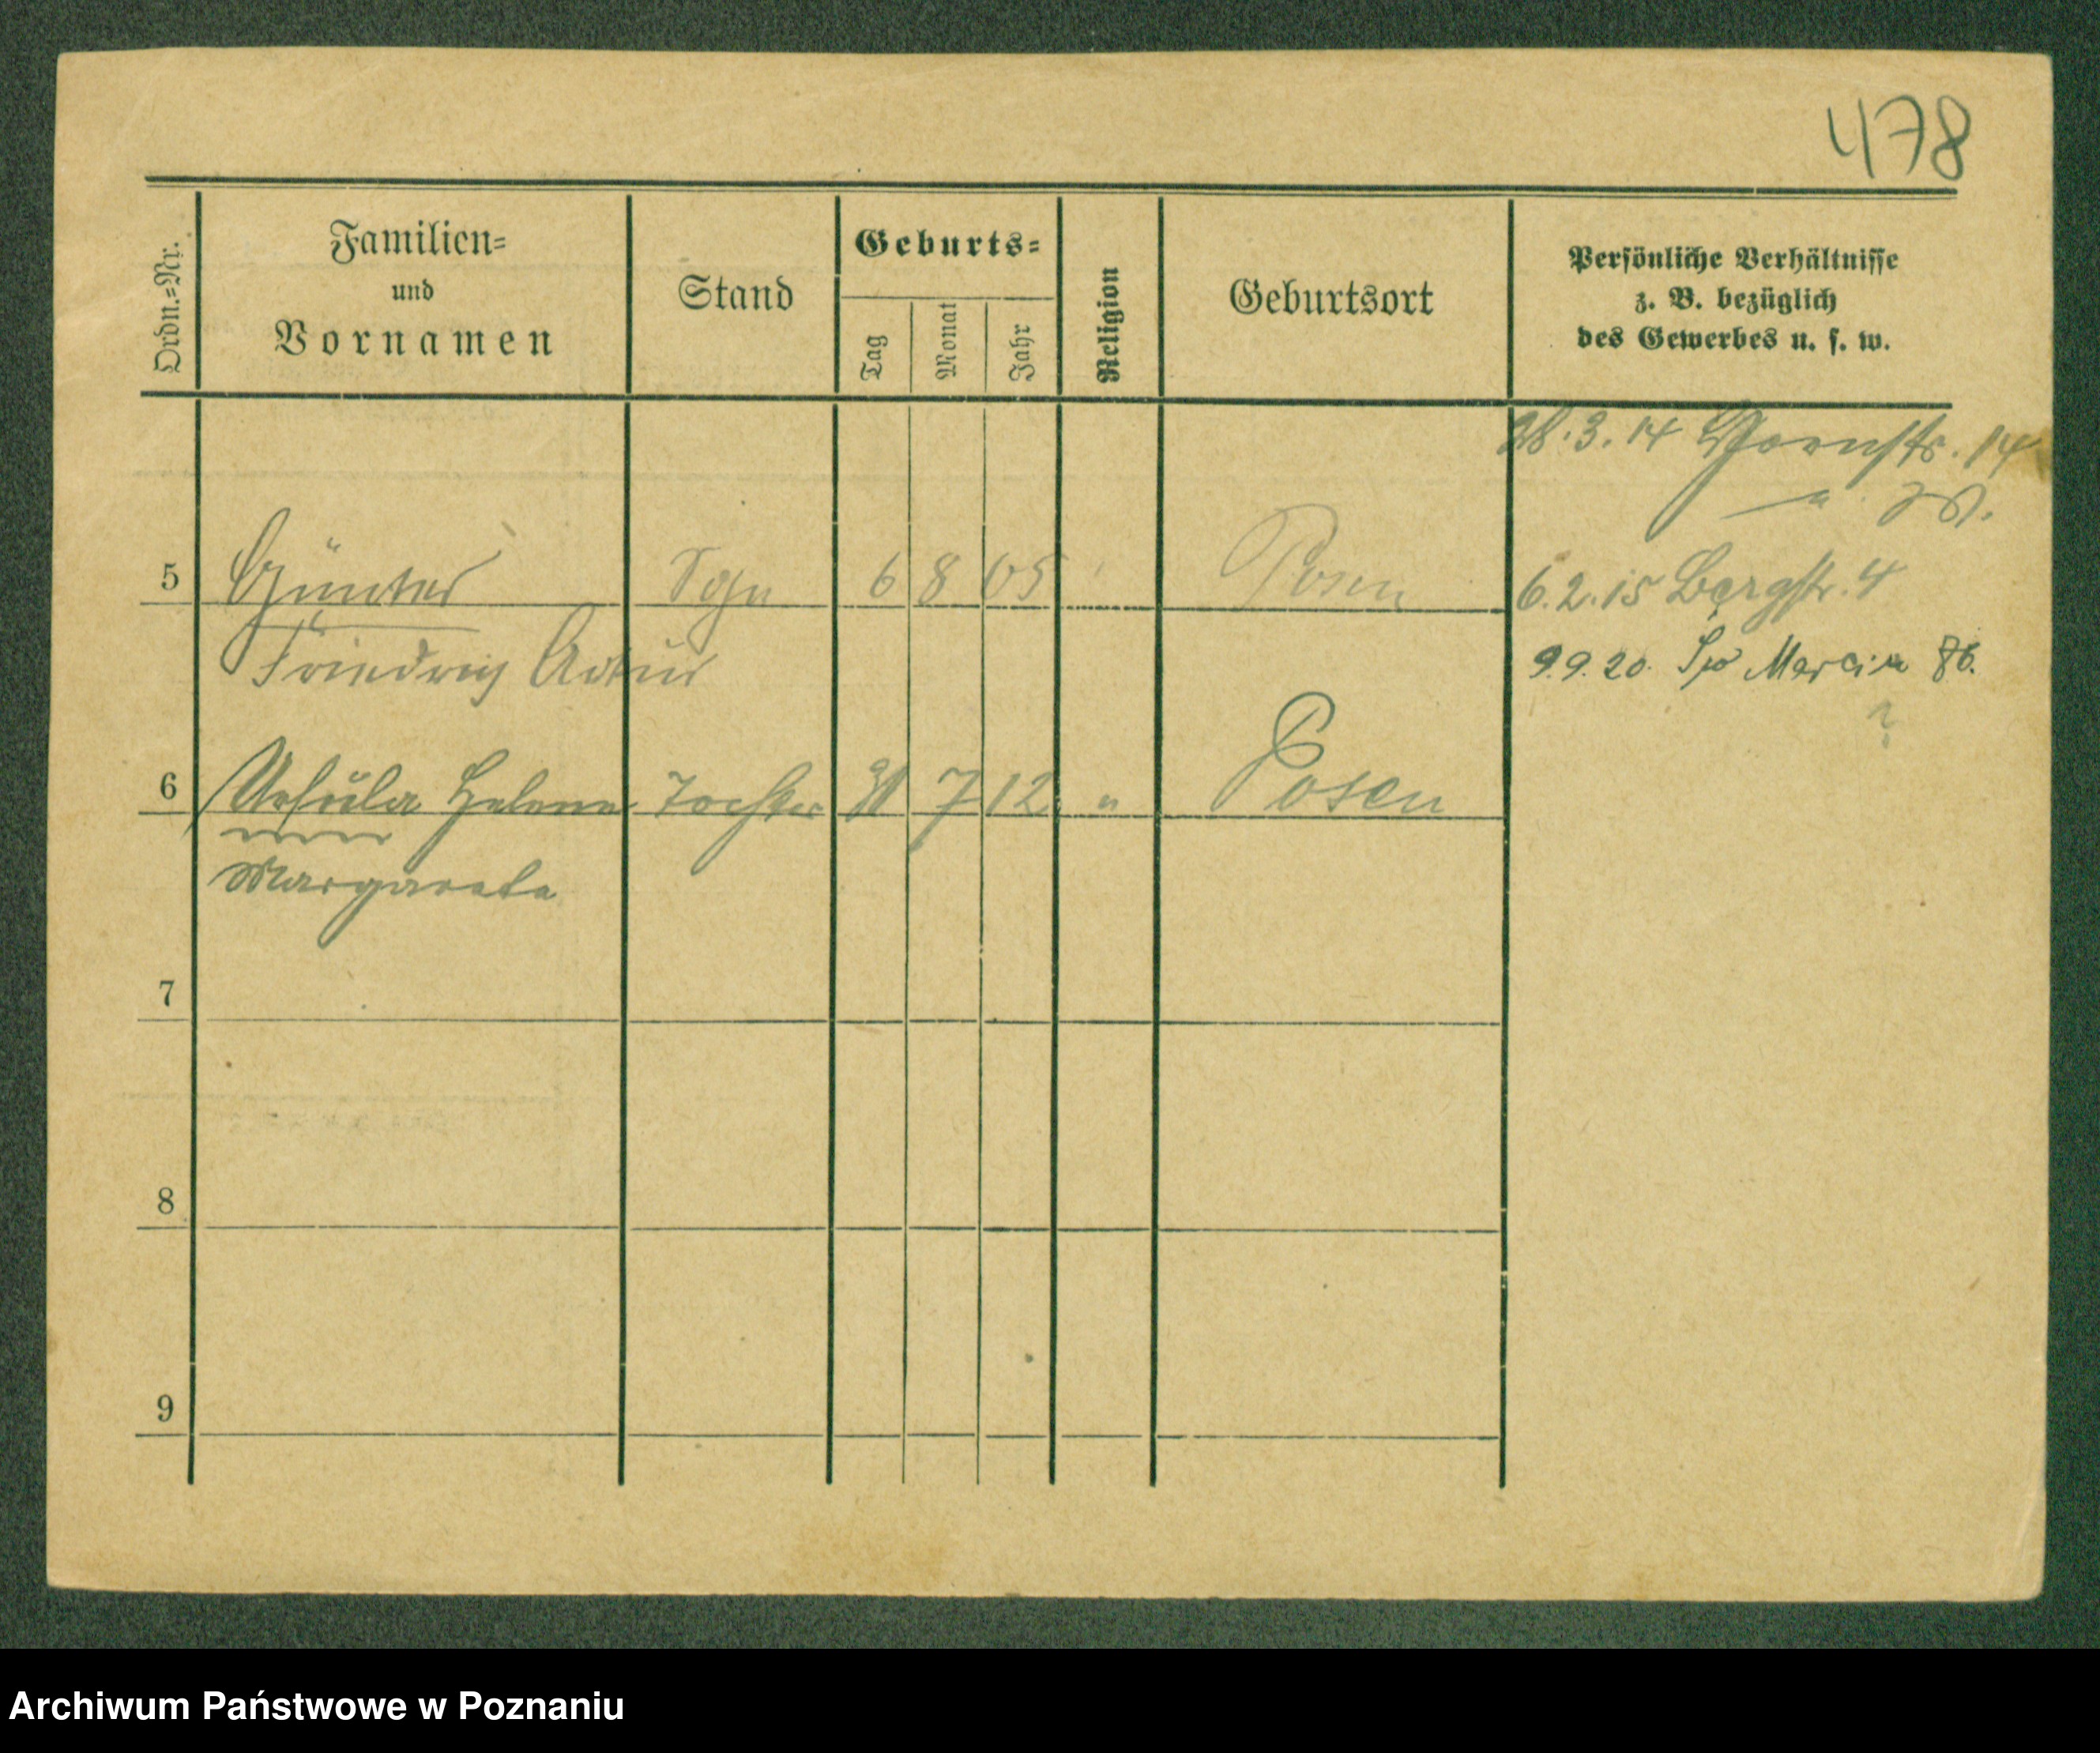 478
Ordn.=Nr.
Familien=
und
Vornamen
Stand
Geburts=
Tag
Monat
Jahr
Religion
Geburtsort
Persönliche Verhältnisse
z. B. bezüglich
des Gewerbes u. s. w.
28.3.14 14
5 Günter 6 8 05 Posen
6.2.15 Bergstr. 4
Friedrich Artur
9.9.20. Św Marcin 86.
?
6 Ursula Helene Tochter 31 7 12 " Posen
Margarete
7
8
9
Archiwum Państwowe w Poznaniu